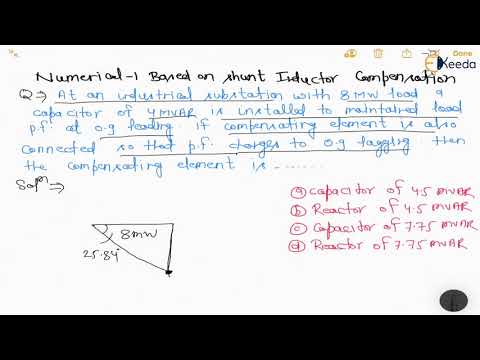 Done
Ekeeda
Numerical-1 Based on shunt Inductor Compensation
Q⇒ At an industrial substation with 8MW load a
capacitor of 4MVAR is installed to maintained load
p.f. at 0.9 leading if compensating element is also
connected so that p.f. changes to 0.9 lagging then
the compensating element is .......
Solⁿ⇒
ⓐ capacitor of 4.5 MVAR
ⓑ Reactor of 4.5 MVAR
ⓒ Capacitor of 7.75 MVAR
ⓓ Reactor of 7.75 MVAR
8MW
25.84°